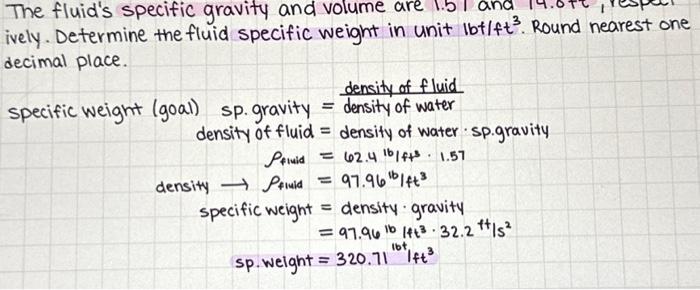 The fluid's specific gravity and volume are 1.57 and
ively. Determine the fluid specific weight in unit lbf/ft³. Round nearest one
decimal place.
density of fluid
specific weight (goal) sp. gravity = density of water
density of fluid = density of water · sp. gravity
ρfluid = 62.4 lb/ft³ · 1.57
density → ρfluid = 97.96 lb/ft³
specific weight = density · gravity
= 97.96 lb/ft³ · 32.2 ft/s²
sp. weight = 320.71 lbf/ft³